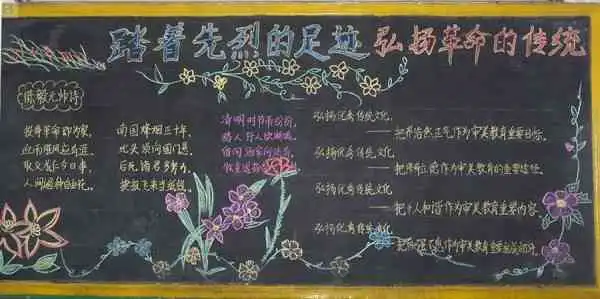 踏着先烈的足迹 弘扬革命的传统
陈毅元帅诗
投身革命即为家,
血雨腥风应有涯
取义成仁今日事,
人间遍种自由花。
南国烽烟正十年,
此头须向国门悬。
后死诸君多努力,
捷报飞来当纸钱。
清明时节雨纷纷,
路上行人欲断魂。
借问酒家何处有,
牧童遥指
弘扬优秀传统文化,
——把养浩然正气作为审美教育重要目标。
弘扬优秀传统文化,
——把作为审美教育的重要途径。
弘扬优秀传统文化
——把个人和谐作为审美教育重要内容。
弘扬优秀传统文化
——把自强不息作为审美教育重要